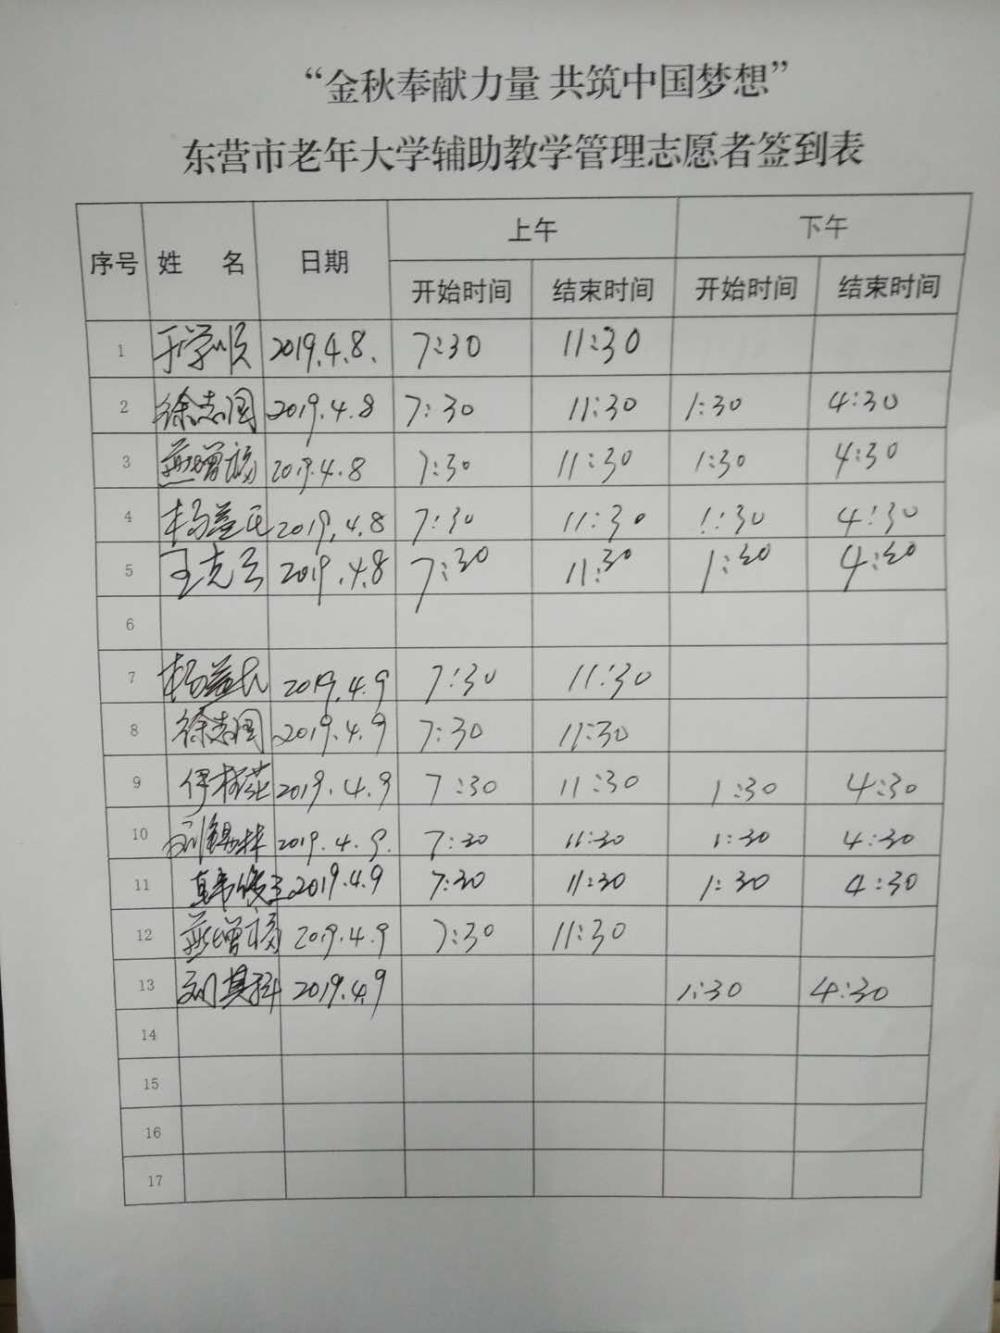 “金秋奉献力量 共筑中国梦想”
东营市老年大学辅助教学管理志愿者签到表
序号 姓 名 日期 上午 下午
开始时间 结束时间 开始时间 结束时间
1 于学顺 2019.4.8. 7:30 11:30
2 徐志国 2019.4.8 7:30 11:30 1:30 4:30
3 燕增福 2019.4.8 7:30 11:30 1:30 4:30
4 杨益民 2019.4.8 7:30 11:30 1:30 4:30
5 王克云 2019.4.8 7:30 11:30 1:30 4:30
6
7 杨益民 2019.4.9 7:30 11:30
8 徐志国 2019.4.9 7:30 11:30
9 2019.4.9 7:30 11:30 1:30 4:30
10 2019.4.9. 7:30 11:30 1:30 4:30
11 2019.4.9 7:30 11:30 1:30 4:30
12 燕增福 2019.4.9 7:30 11:30
13 刘其科 2019.4.9 1:30 4:30
14
15
16
17